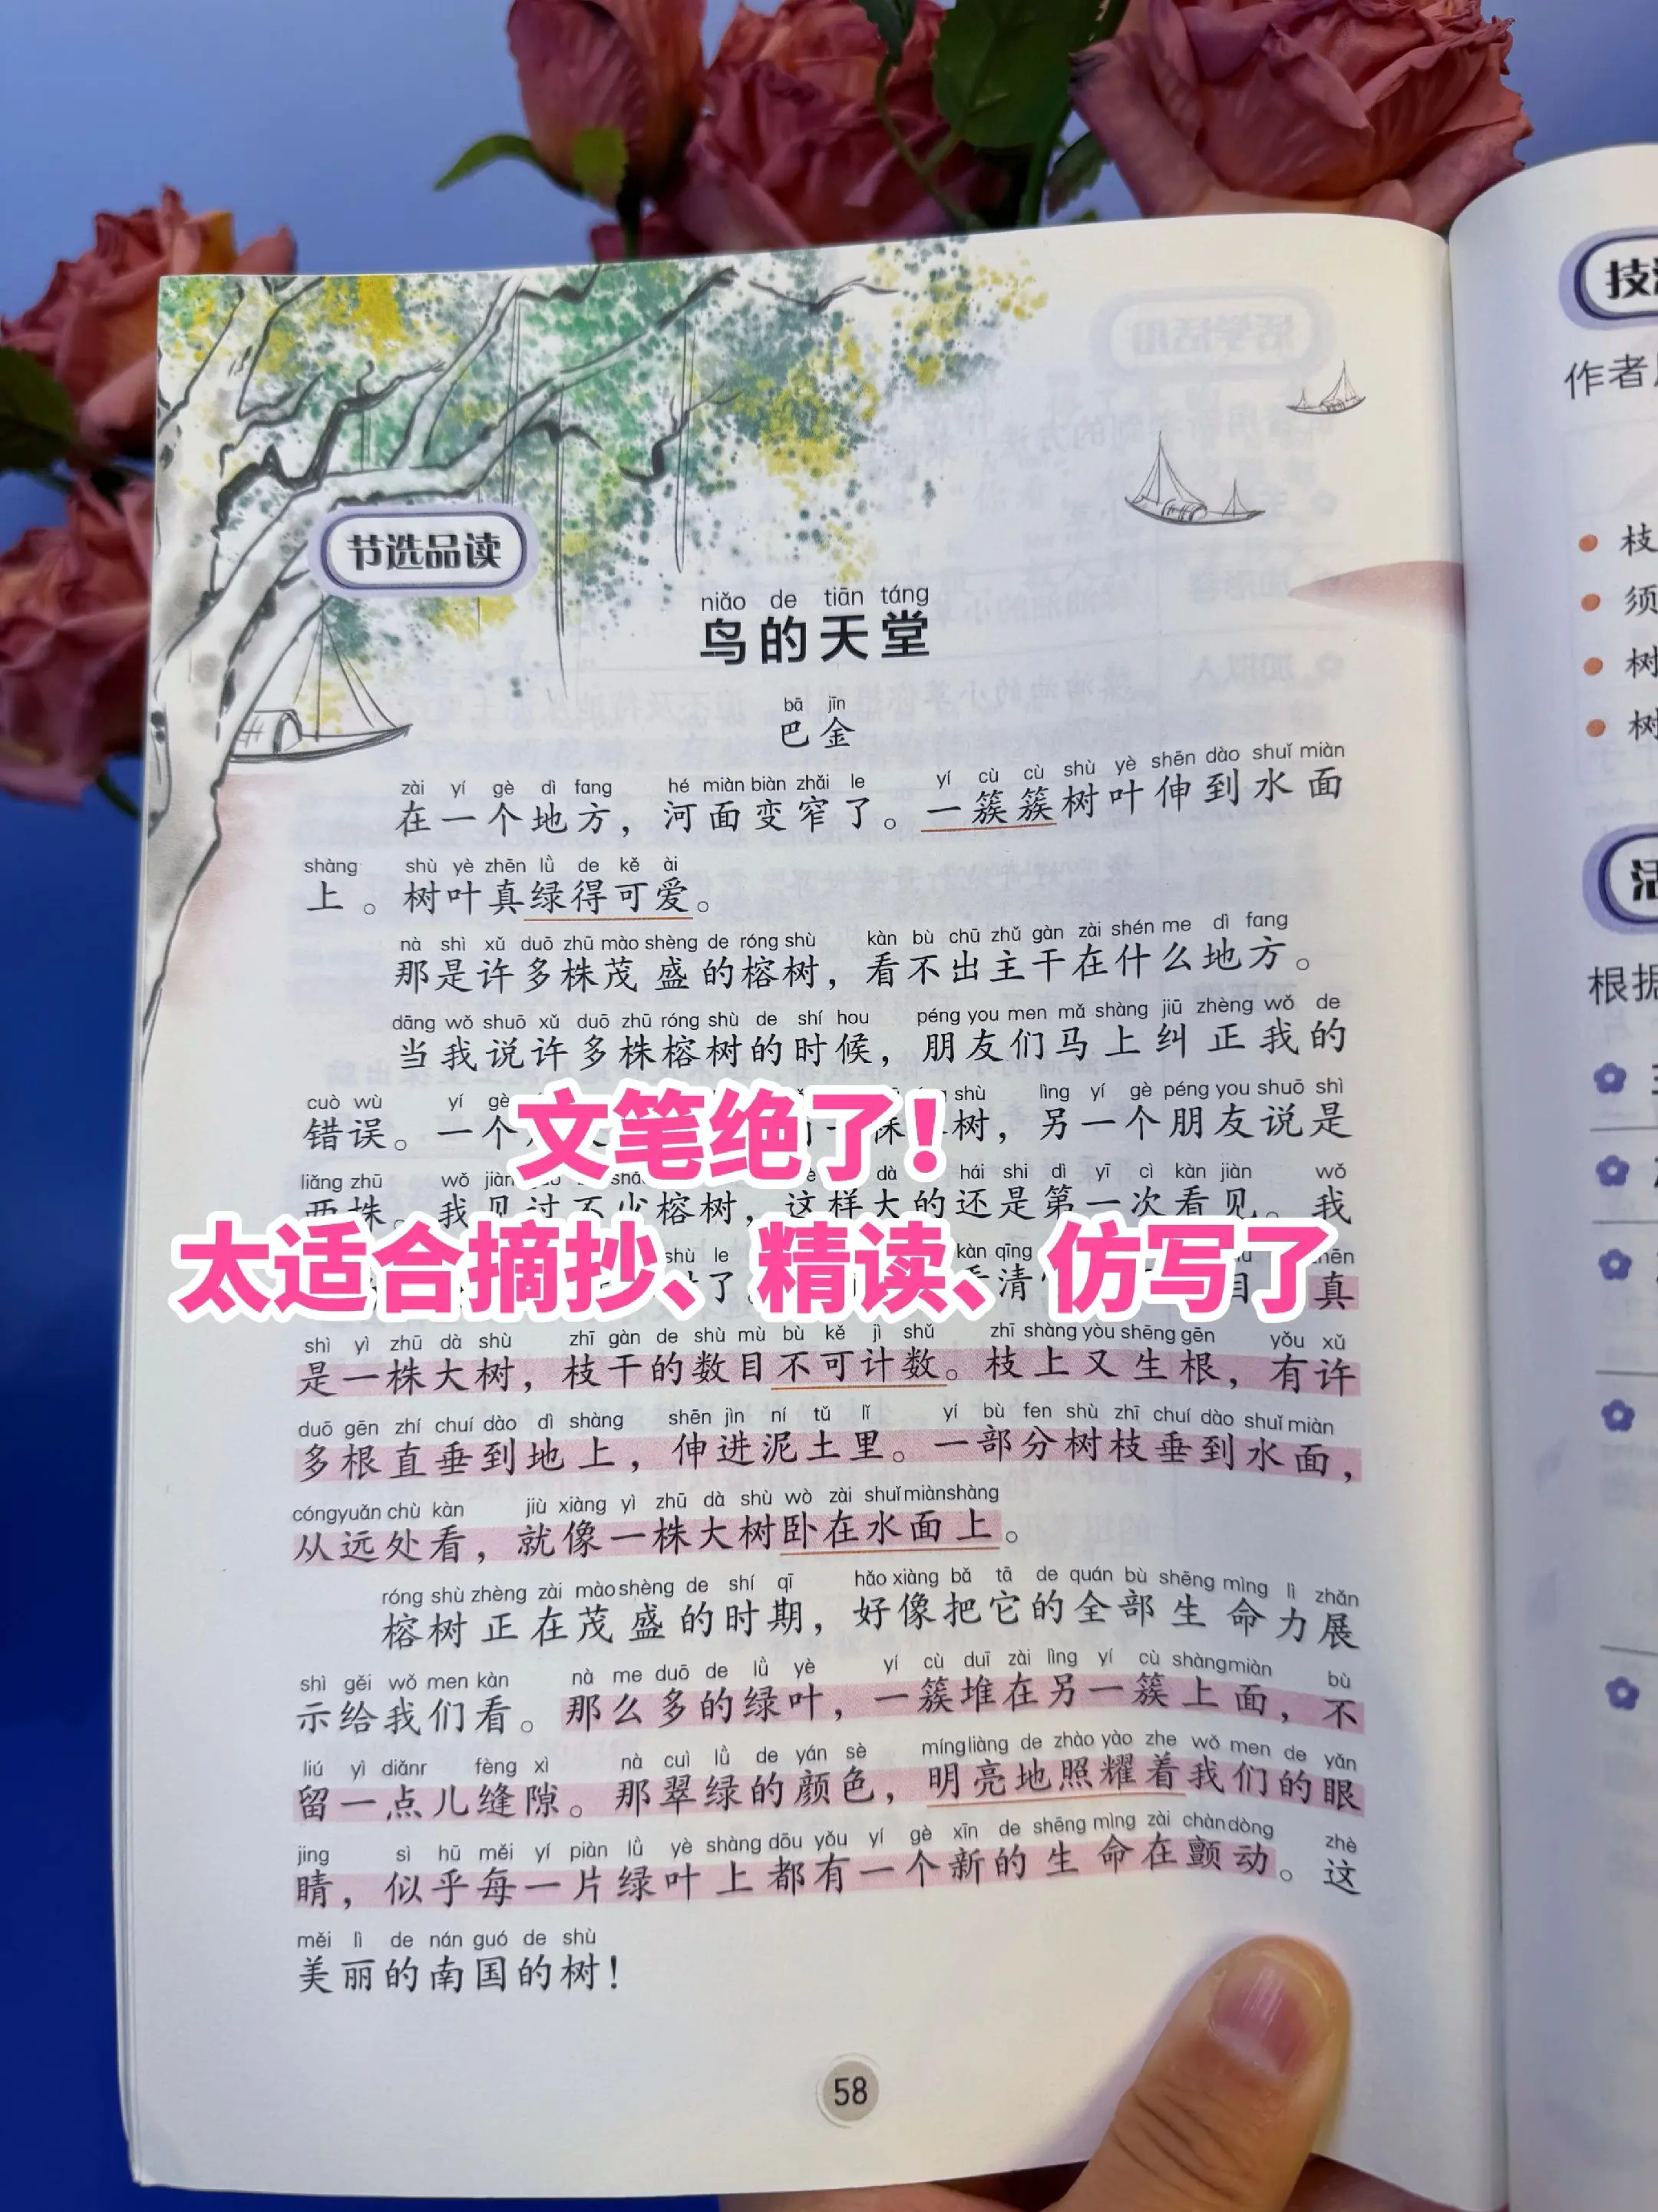 节选品读
niǎo de tiān táng
鸟的天堂
bā jīn
巴金
zài yí gè dì fang hé miàn biàn zhǎi le yí cù cù shù yè shēn dào shuǐ miàn
在一个地方，河面变窄了。一簇簇树叶伸到水面
shàng shù yè zhēn lǜ de kě ài
上。树叶真绿得可爱。
nà shì xǔ duō zhū mào shèng de róng shù kàn bù chū zhǔ gàn zài shén me dì fang
那是许多株茂盛的榕树，看不出主干在什么地方。
dāng wǒ shuō xǔ duō zhū róng shù de shí hou péng you men mǎ shàng jiū zhèng wǒ de
当我说许多株榕树的时候，朋友们马上纠正我的
cuò wù yí gè shù lìng yí gè péng you shuō shì
错误。一个 树，另一个朋友说是
文笔绝了！
liǎng zhū wǒ jiàn dà hái shi dì yī cì kàn jiàn wǒ
两株。我见过不少榕树，这样大的还是第一次看见。我
太适合摘抄、精读、仿写了
shù le kàn qīng zhēn
了。 清 目 真
shì yì zhū dà shù zhī gàn de shù mù bù kě jì shǔ zhī shàng yòu shēng gēn yǒu xǔ
是一株大树，枝干的数目不可计数。枝上又生根，有许
duō gēn zhí chuí dào dì shàng shēn jìn ní tǔ lǐ yí bù fen shù zhī chuí dào shuǐ miàn
多根直垂到地上，伸进泥土里。一部分树枝垂到水面，
cóng yuǎn chù kàn jiù xiàng yì zhū dà shù wò zài shuǐ miàn shàng
从远处看，就像一株大树卧在水面上。
róng shù zhèng zài mào shèng de shí qī hǎo xiàng bǎ tā de quán bù shēng mìng lì zhǎn
榕树正在茂盛的时期，好像把它的全部生命力展
shì gěi wǒ men kàn nà me duō de lǜ yè yí cù duī zài lìng yí cù shàng miàn bù
示给我们看。那么多的绿叶，一簇堆在另一簇上面，不
liú yì diǎnr fèng xì nà cuì lǜ de yán sè míng liàng de zhào yào zhe wǒ men de yǎn
留一点儿缝隙。那翠绿的颜色，明亮地照耀着我们的眼
jing sì hū měi yí piàn lǜ yè shàng dōu yǒu yí gè xīn de shēng mìng zài chàn dòng zhè
睛，似乎每一片绿叶上都有一个新的生命在颤动。这
měi lì de nán guó de shù
美丽的南国的树！
58
作者
枝
须
树
树
根据